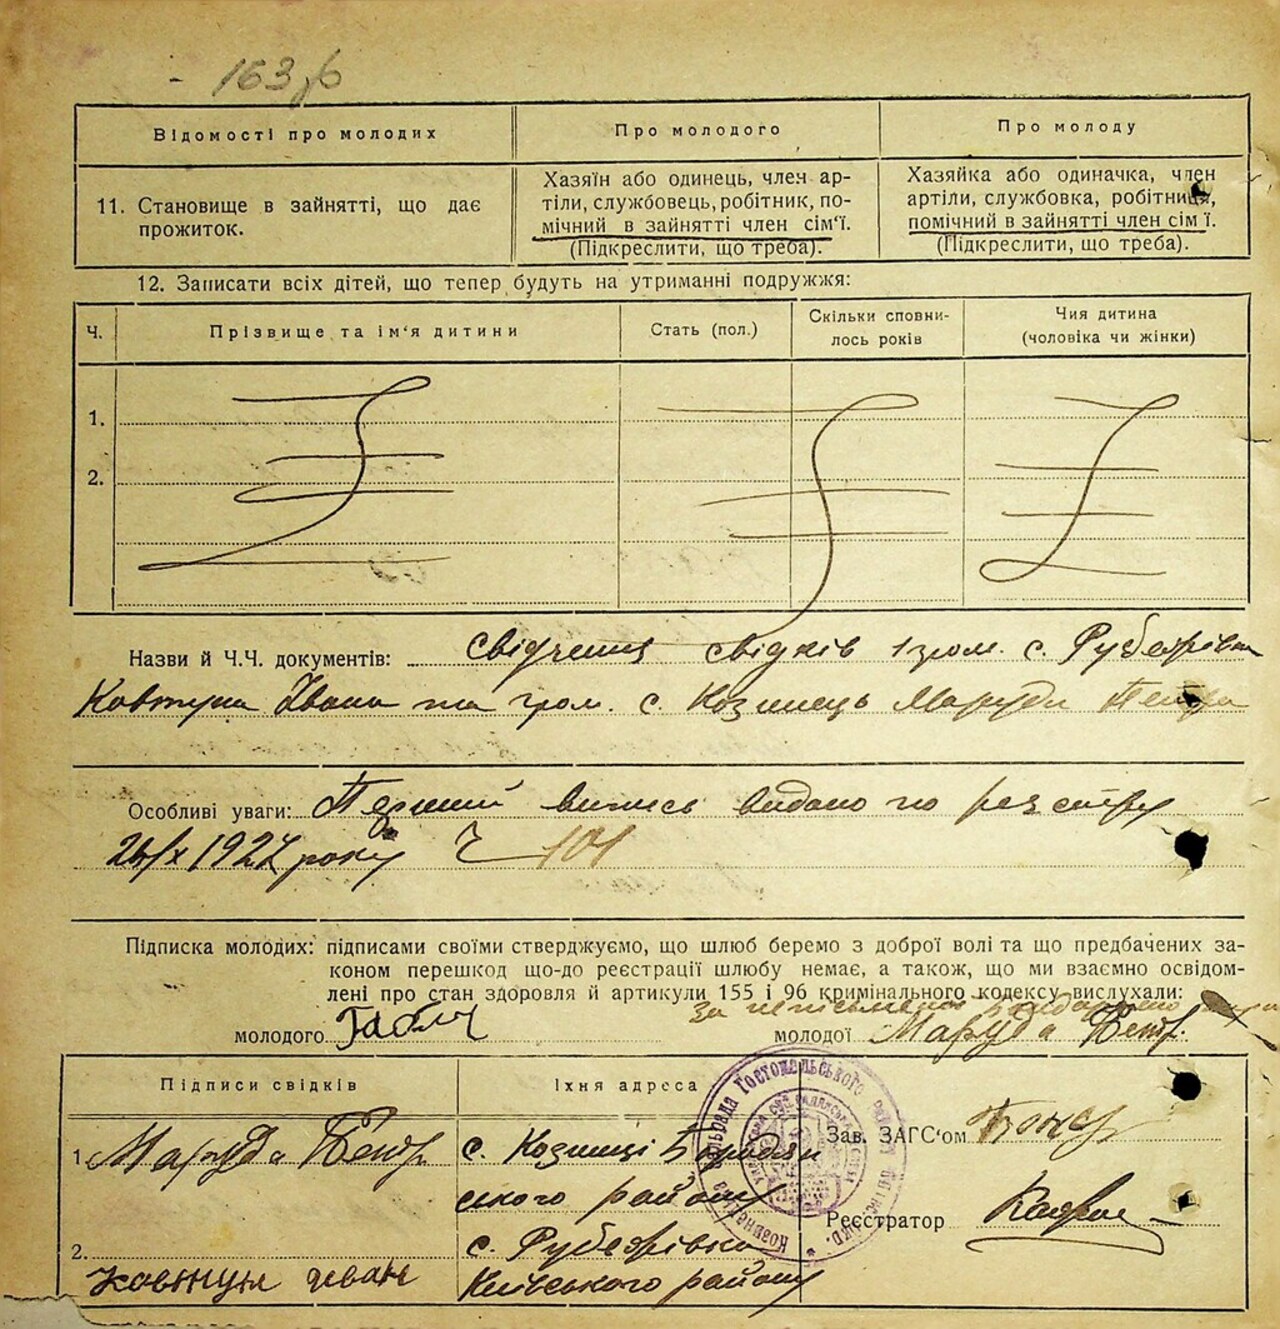 163 зв
Відомості про молодих
Про молодого
Про молоду
11. Становище в зайнятті, що дає прожиток.
Хазяїн або одинець, член ар-
тіли, службовець, робітник, по-
мічний в зайнятті член сім'ї.
(Підкреслити, що треба).
Хазяйка або одиначка, член
артіли, службовка, робітниця,
помічний в зайнятті член сім'ї.
(Підкреслити, що треба).
12. Записати всіх дітей, що тепер будуть на утриманні подружжя:
Ч.
Прізвище та ім'я дитини
Стать (пол.)
Скільки сповни-
лось років
Чия дитина
(чоловіка чи жінки)
1.
2.
Назви й Ч.Ч. документів: свідчення свідків гром. с. Рубежівка
Ковтуна Івана та гром. с. Козинець Маруди Петра
Особливі уваги: Перший випись видано по реєстру
1927 року Ч 101
Підписка молодих: підписами своїми стверджуємо, що шлюб беремо з доброї волі та що предбачених за-
коном перешкод що-до реєстрації шлюбу немає, а також, що ми взаємно освідом-
лені про стан здоровля й артикули 155 і 96 кримінального кодексу вислухали:
за неписьменну
молодого
молодої Маруда Петр
Підписи свідків
Їхня адреса
1. Маруда Петр
с. Козинці Бородян
ського району
2. Ковтун Иван
с. Рубежівка
Київського району
Зав. ЗАГС'ом
Реєстратор
сільрада Гостомельського району